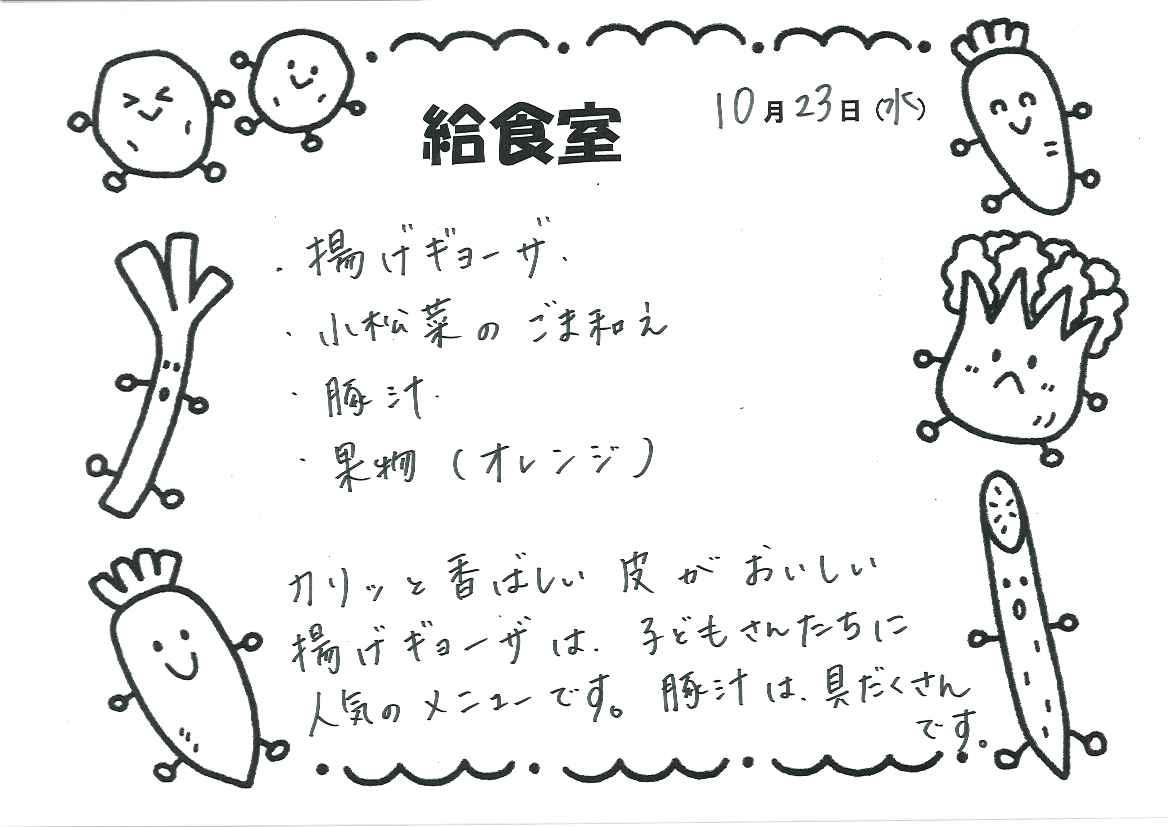 給食室
10月23日(水)
・揚げギョーザ.
・小松菜のごま和え
・豚汁.
・果物(オレンジ)
カリッと香ばしい皮がおいしい
揚げギョーザは、子どもさんたちに
人気のメニューです。豚汁は、具だくさん
です。